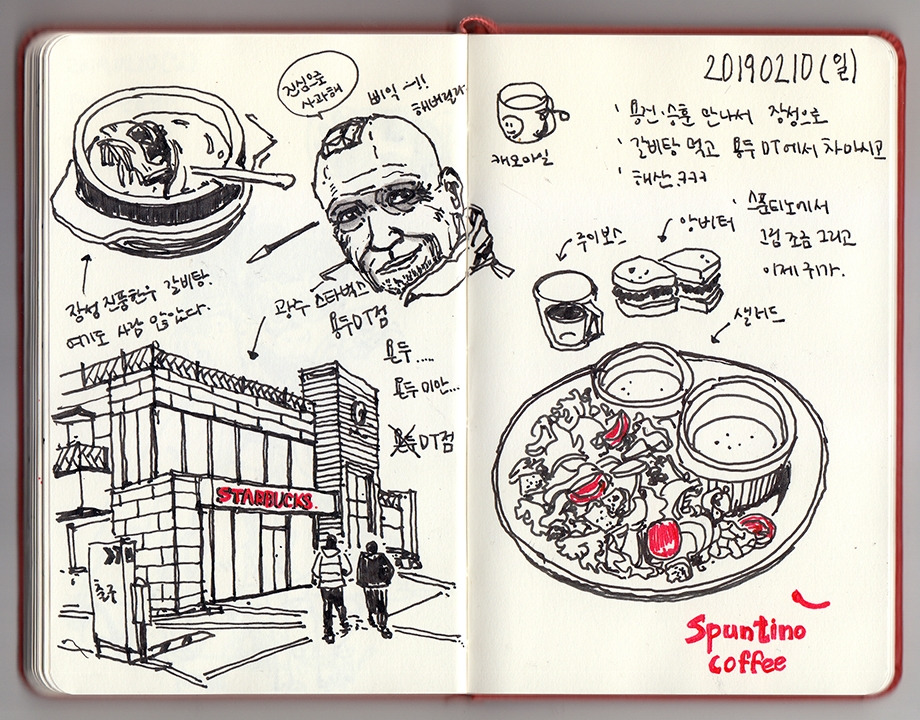 진심으로
사과해
삐익-!!
해버릴라
장성 진풍한우 갈비탕.
여기도 사람 많았다.
광주 스타벅스
용두DT점
욘두....
욘두 미안...
DT점
STARBUCKS
출구
20190210(일)
' 승훈 만나서 장성으로
' 갈비탕 먹고 용두 DT에서 차 마시고
' 해산.ㅋㅋㅋ
' 스푼티노에서
그림 조금 그리고
이제 귀가.
캐모마일
루이보스
앙버터
샐러드
Spuntino
coffee